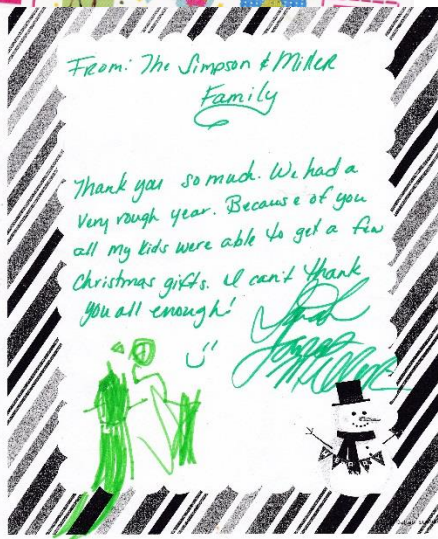 From: The Simpson & Miller
Family
Thank you so much. We had a
very rough year. Because of you
all my kids were able to get a few
Christmas gifts. I can't thank
you all enough!